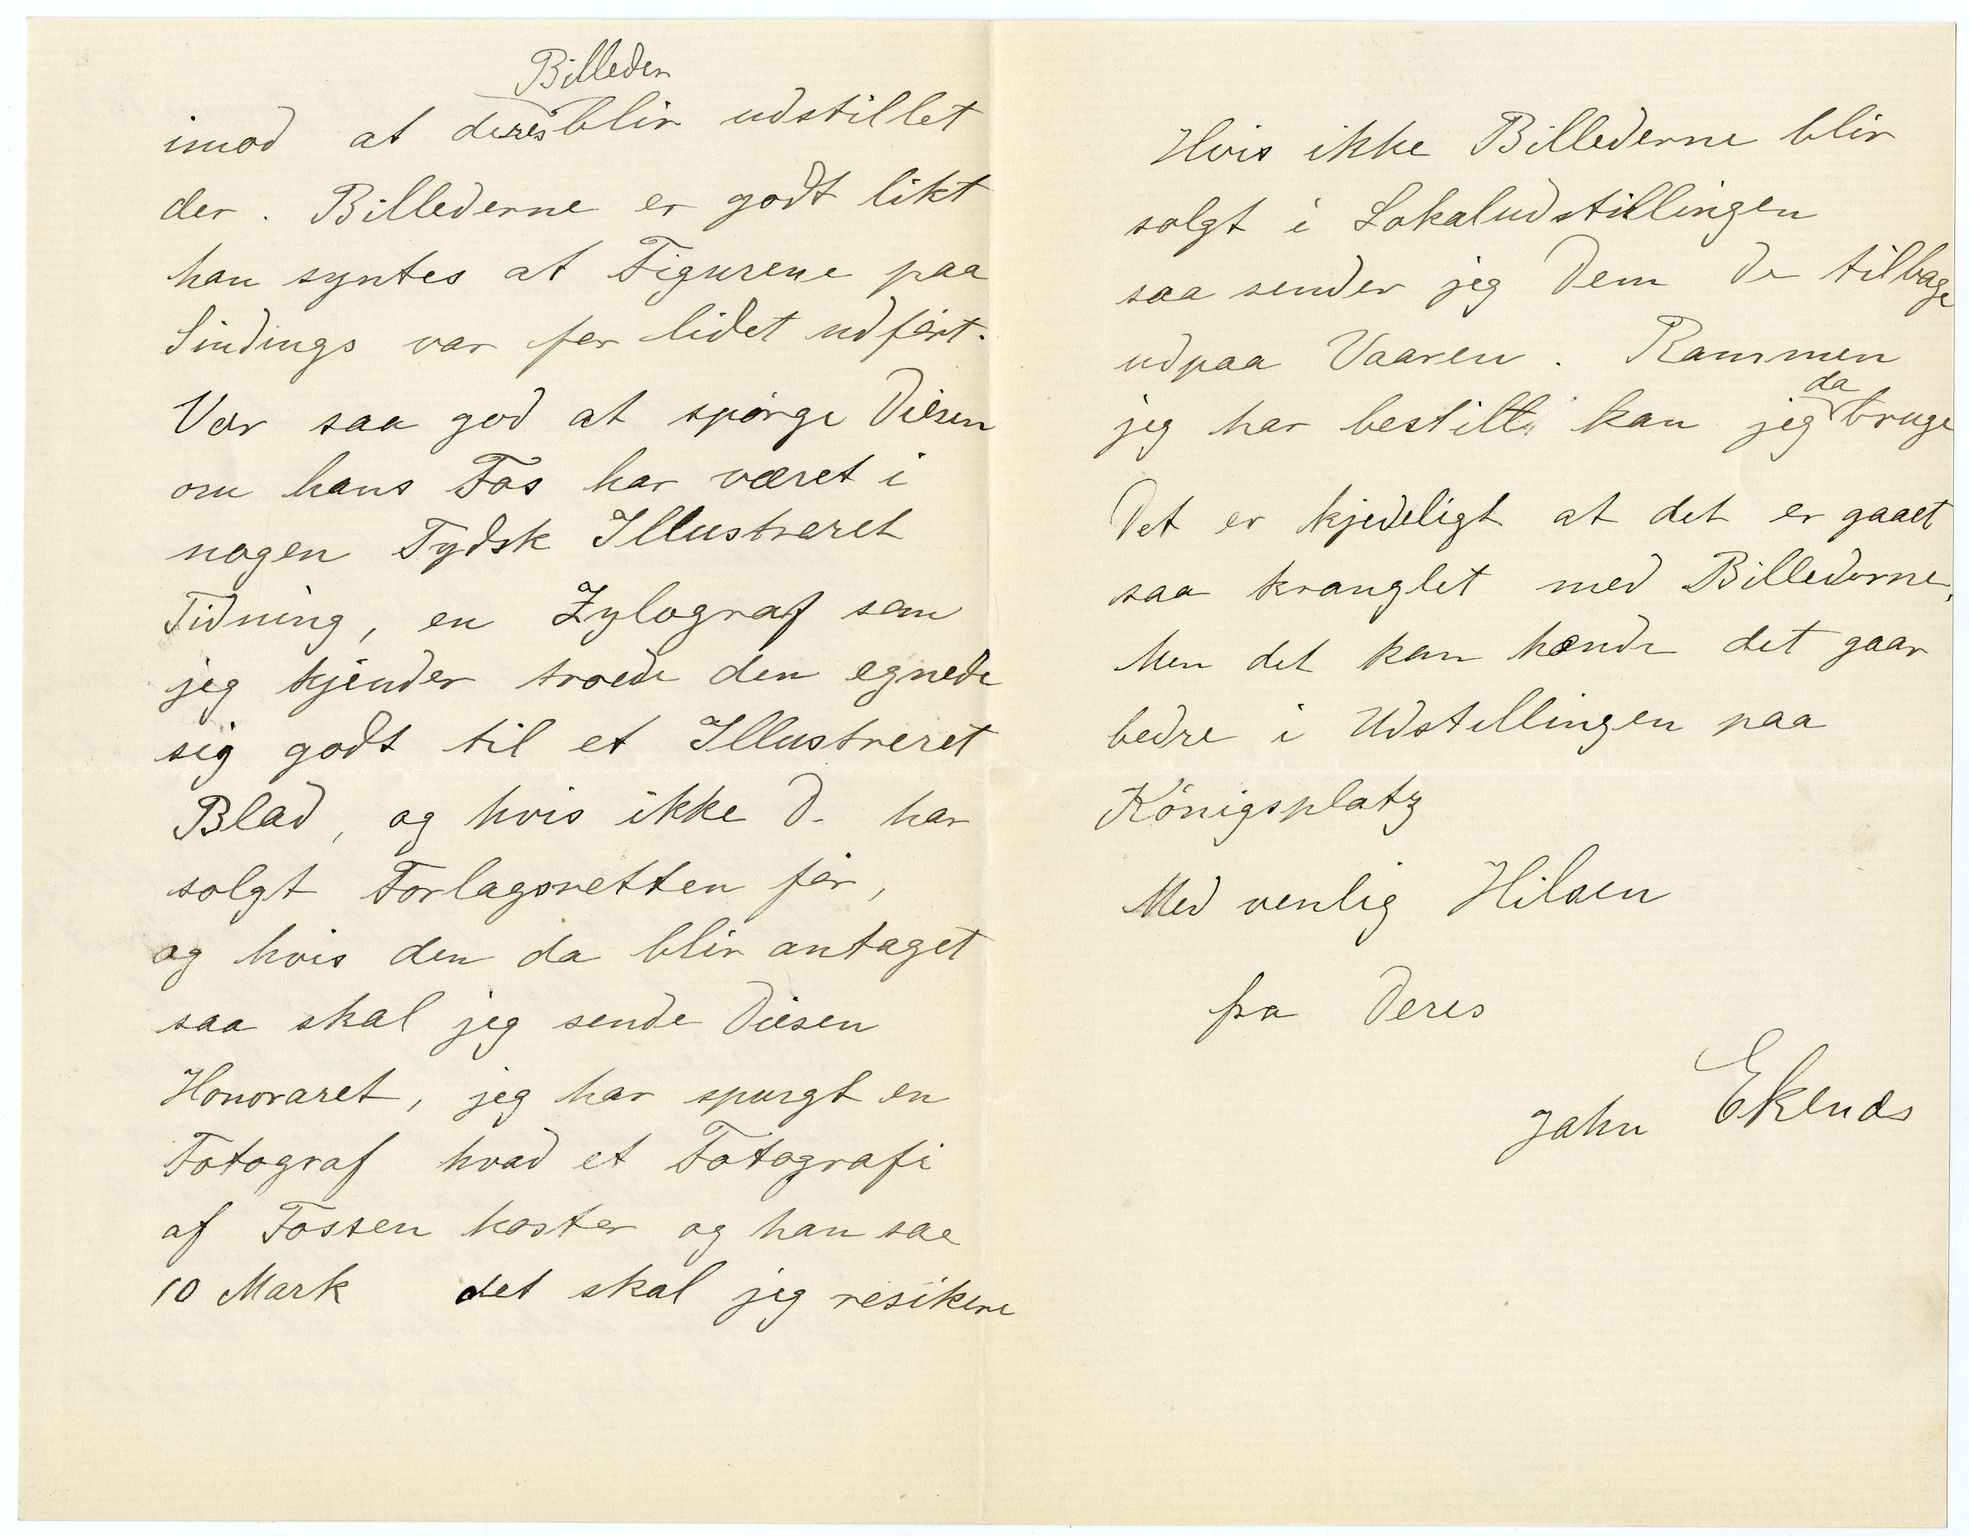 Billeder
imod at deres blir udstillet
der. Billederne er godt likt
han syntes at Figurene paa
Sindings var for lidet udført.
Vær saa god at spørge Diesen
om hans Fos har været i
nogen Tydsk Illustreret
Tidning, en Zylograf som
jeg kjender troede den egnede
sig godt til et Illustreret
Blad, og hvis ikke D. har
solgt Forlagsretten før,
og hvis den da blir antaget
saa skal jeg sende Diesen
Honoraret, jeg har spurgt en
Fotograf hvad et Fotografi
af Fossen koster og han sae
10 Mark det skal jeg resikere
Hvis ikke Billederne blir
solgt i Lokaludstillingen
saa sender jeg Dem De tilbage
udpaa Vaaren. Rammen
da
jeg har bestilt kan jeg bruge
Det er kjedeligt at det er gaaet
saa kranglet med Billederne,
Men det kan hænde det gaar
bedre i Udstillingen paa
Königsplatz
Med venlig Hilsen
fra Deres
John Ekenæs